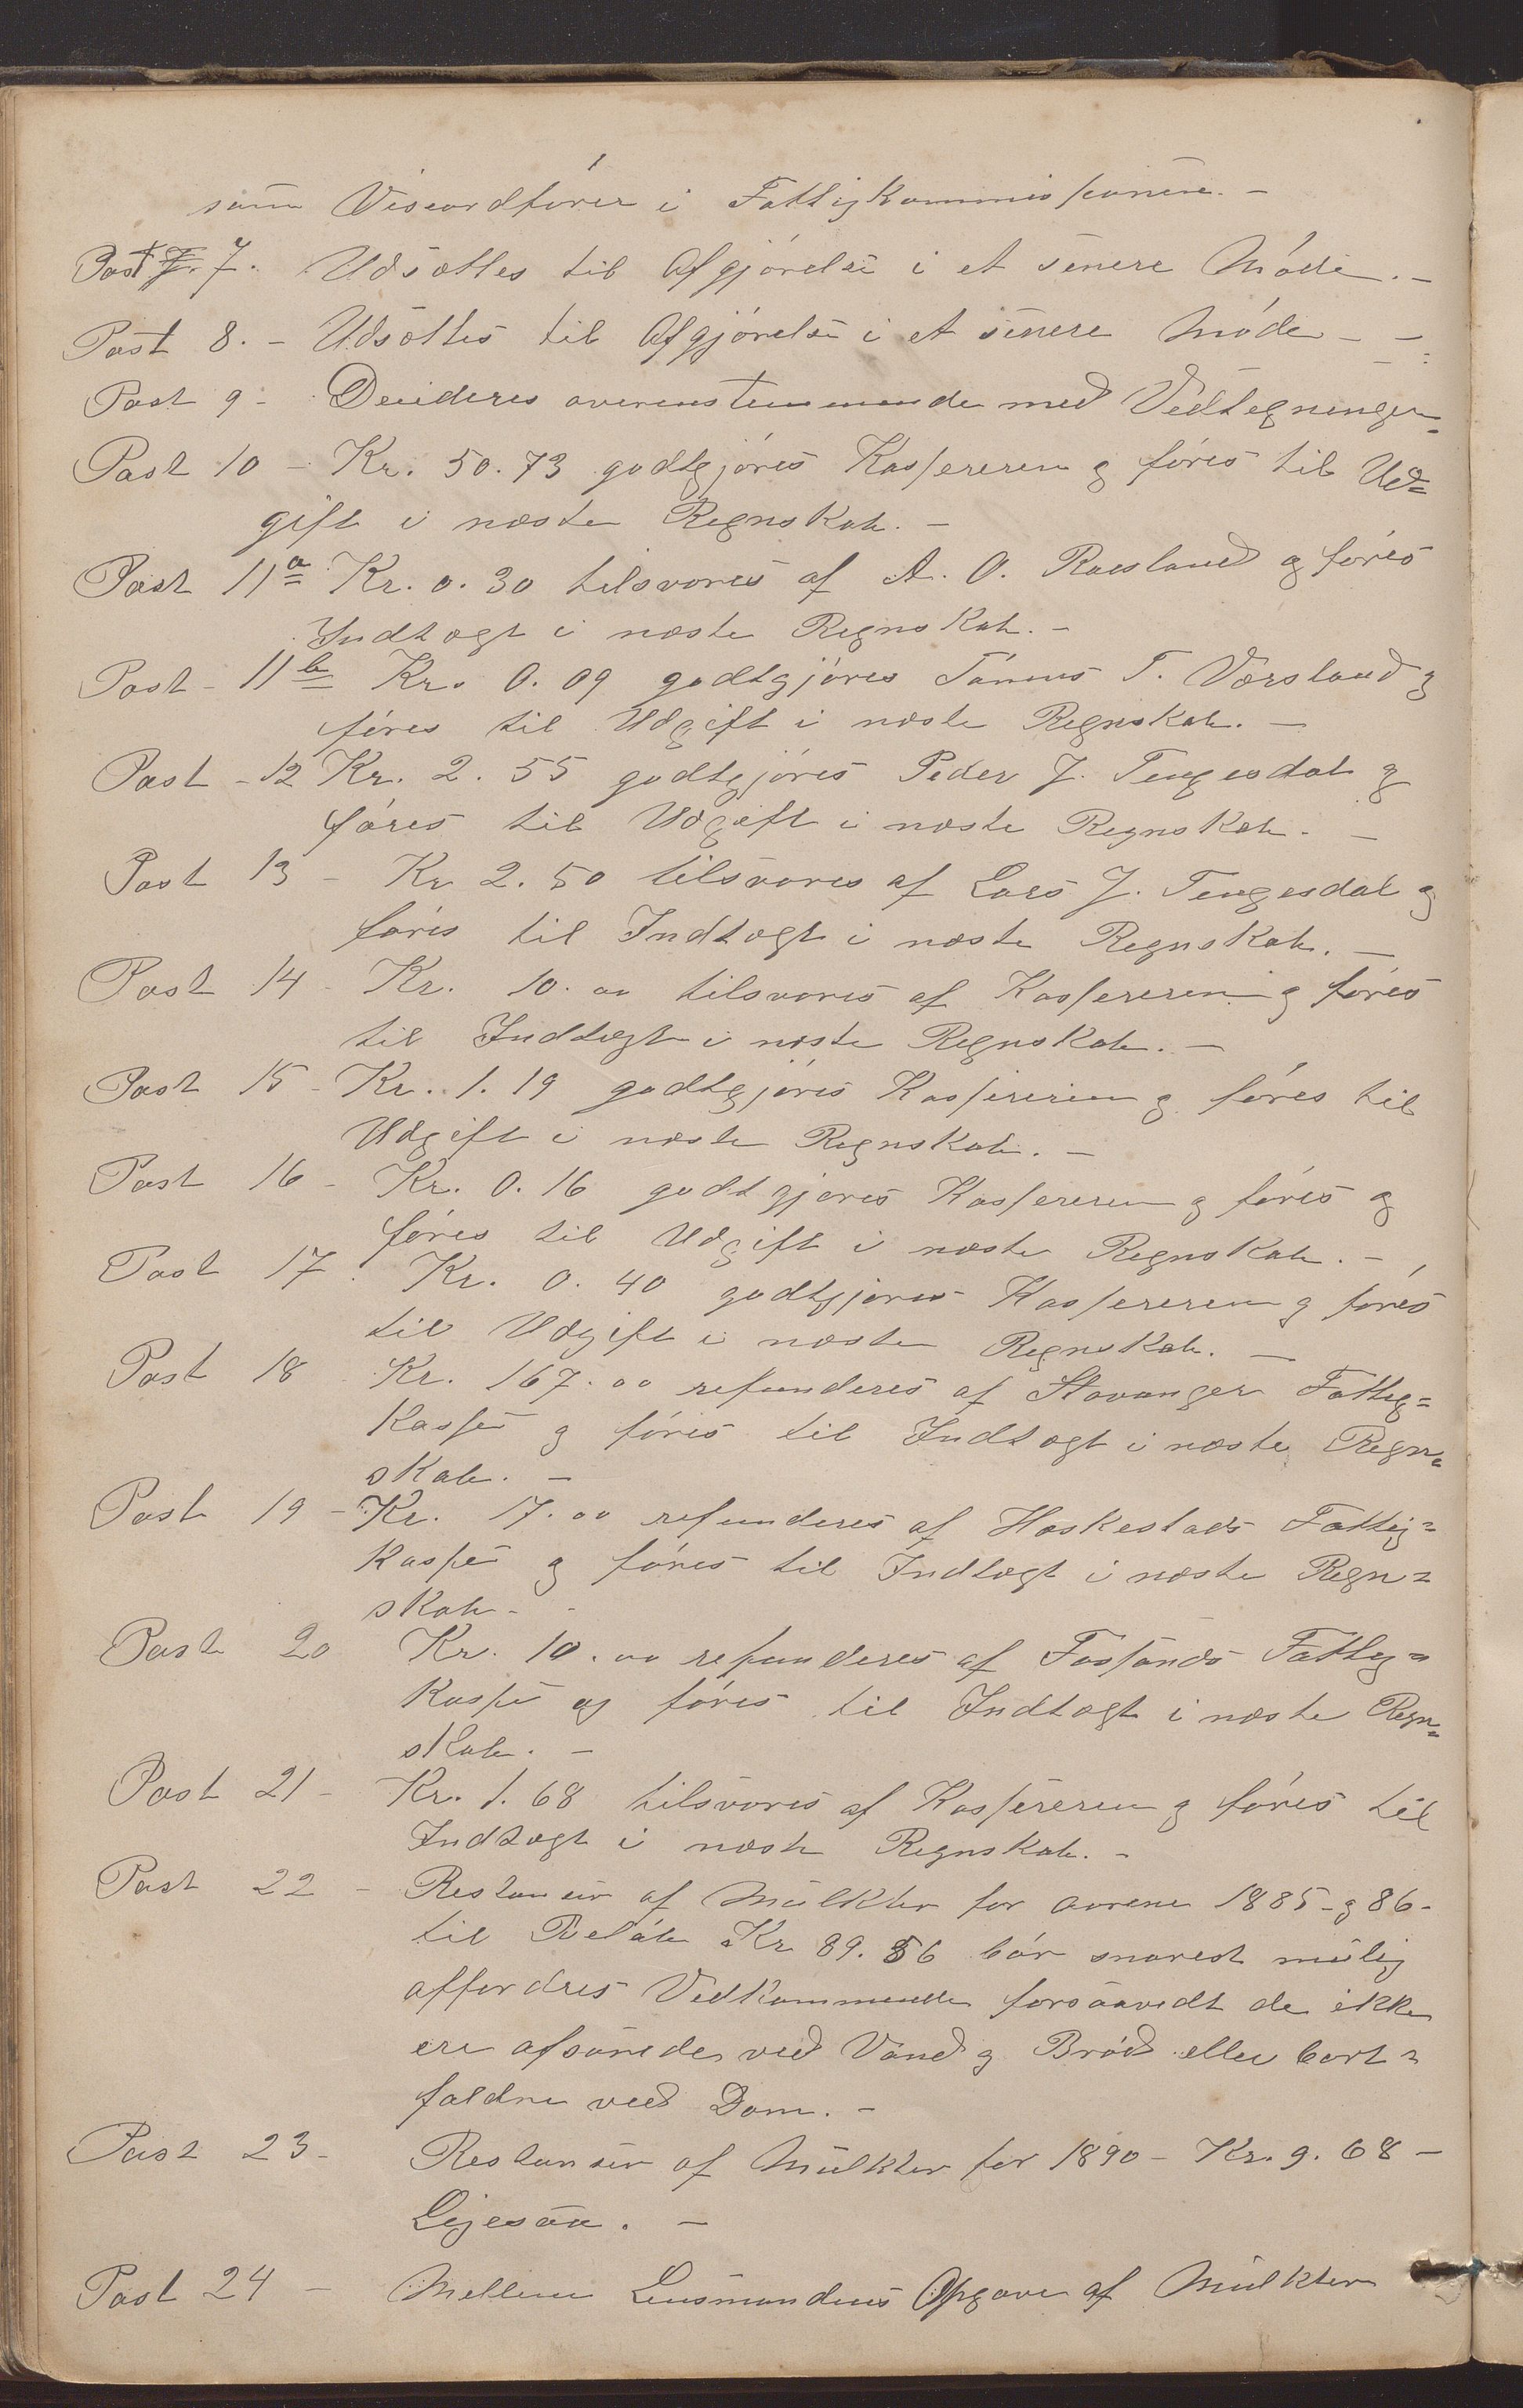 som Viseordfører i Fattigkommissionen. -
Post 7. Udsættes til Afgjørelse i et senere Møde. -
Post 8. - Udsættes til Afgjørelse i et senere Møde - -
Post 9 - Desideres overenstemmende med Vedtegningen
Post 10 - Kr. 50.73 godtgjøres Kassereren og føres til Ud=
gift i næste Regnskab. -
Post 11a Kr. 0.30 tilsvares af A. O. Roesland og føres
Indtægt i næste Regnskab. -
Post - 11b Kr. 0.09 godtgjøres Tønnes T. Værsland og
føres til Udgift i næste Regnskab. -
Post - 12 Kr. 2.55 godtgjøres Peder J. Tengesdal og
føres til Udgift i næste Regnskab. -
Post 13 - Kr 2.50 tilsvares af Lars J. Tengesdal og
føres til Indtægt i næste Regnskab. -
Post 14 - Kr. 10.00 tilsvares af Kassereren og føres
til Indtægt i næste Regnskab. -
Post 15 - Kr. 1.19 godtgjøres Kassereren og føres til
Udgift i næste Regnskab. -
Post 16 - Kr. 0.16 godtgjøres Kassereren og føres og
føres til Udgift i næste Regnskab. -
Post 17. Kr. 0.40 godtgjøres Kassereren og føres
til Udgift i næste Regnskab. -
Post 18 Kr. 167.00 refunderes af Stavanger Fattig=
kasse og føres til Indtægt i næste Regn=
skab. -
Post 19 - Kr. 17.00 refunderes af Heskestads Fattig=
kasse og føres til Indtægt i næste Regn=
skab - -
Post 20 Kr. 10.00 refunderes af Fossands Fattig=
kasse og føres til Indtægt i næste Regn=
skab. -
Post 21 - Kr. 1.68 tilsvares af Kassereren og føres til
Indtægt i næste Regnskab. -
Post 22 - Restanser af Mulkter for Aarene 1885 - og 86 -
til Beløb Kr 89.56 bør snarest mulig
affordres Vedkommende forsaavidt de ikke
ere afsonede ved Vand og Brød eller bort=
faldne ved Dom. -
Post 23 - Restanser af Mulkter for 1890 - Kr. 9.68 -
Ligesaa. -
Post 24 - Mellem Lensmandens Opgave af Mulkter